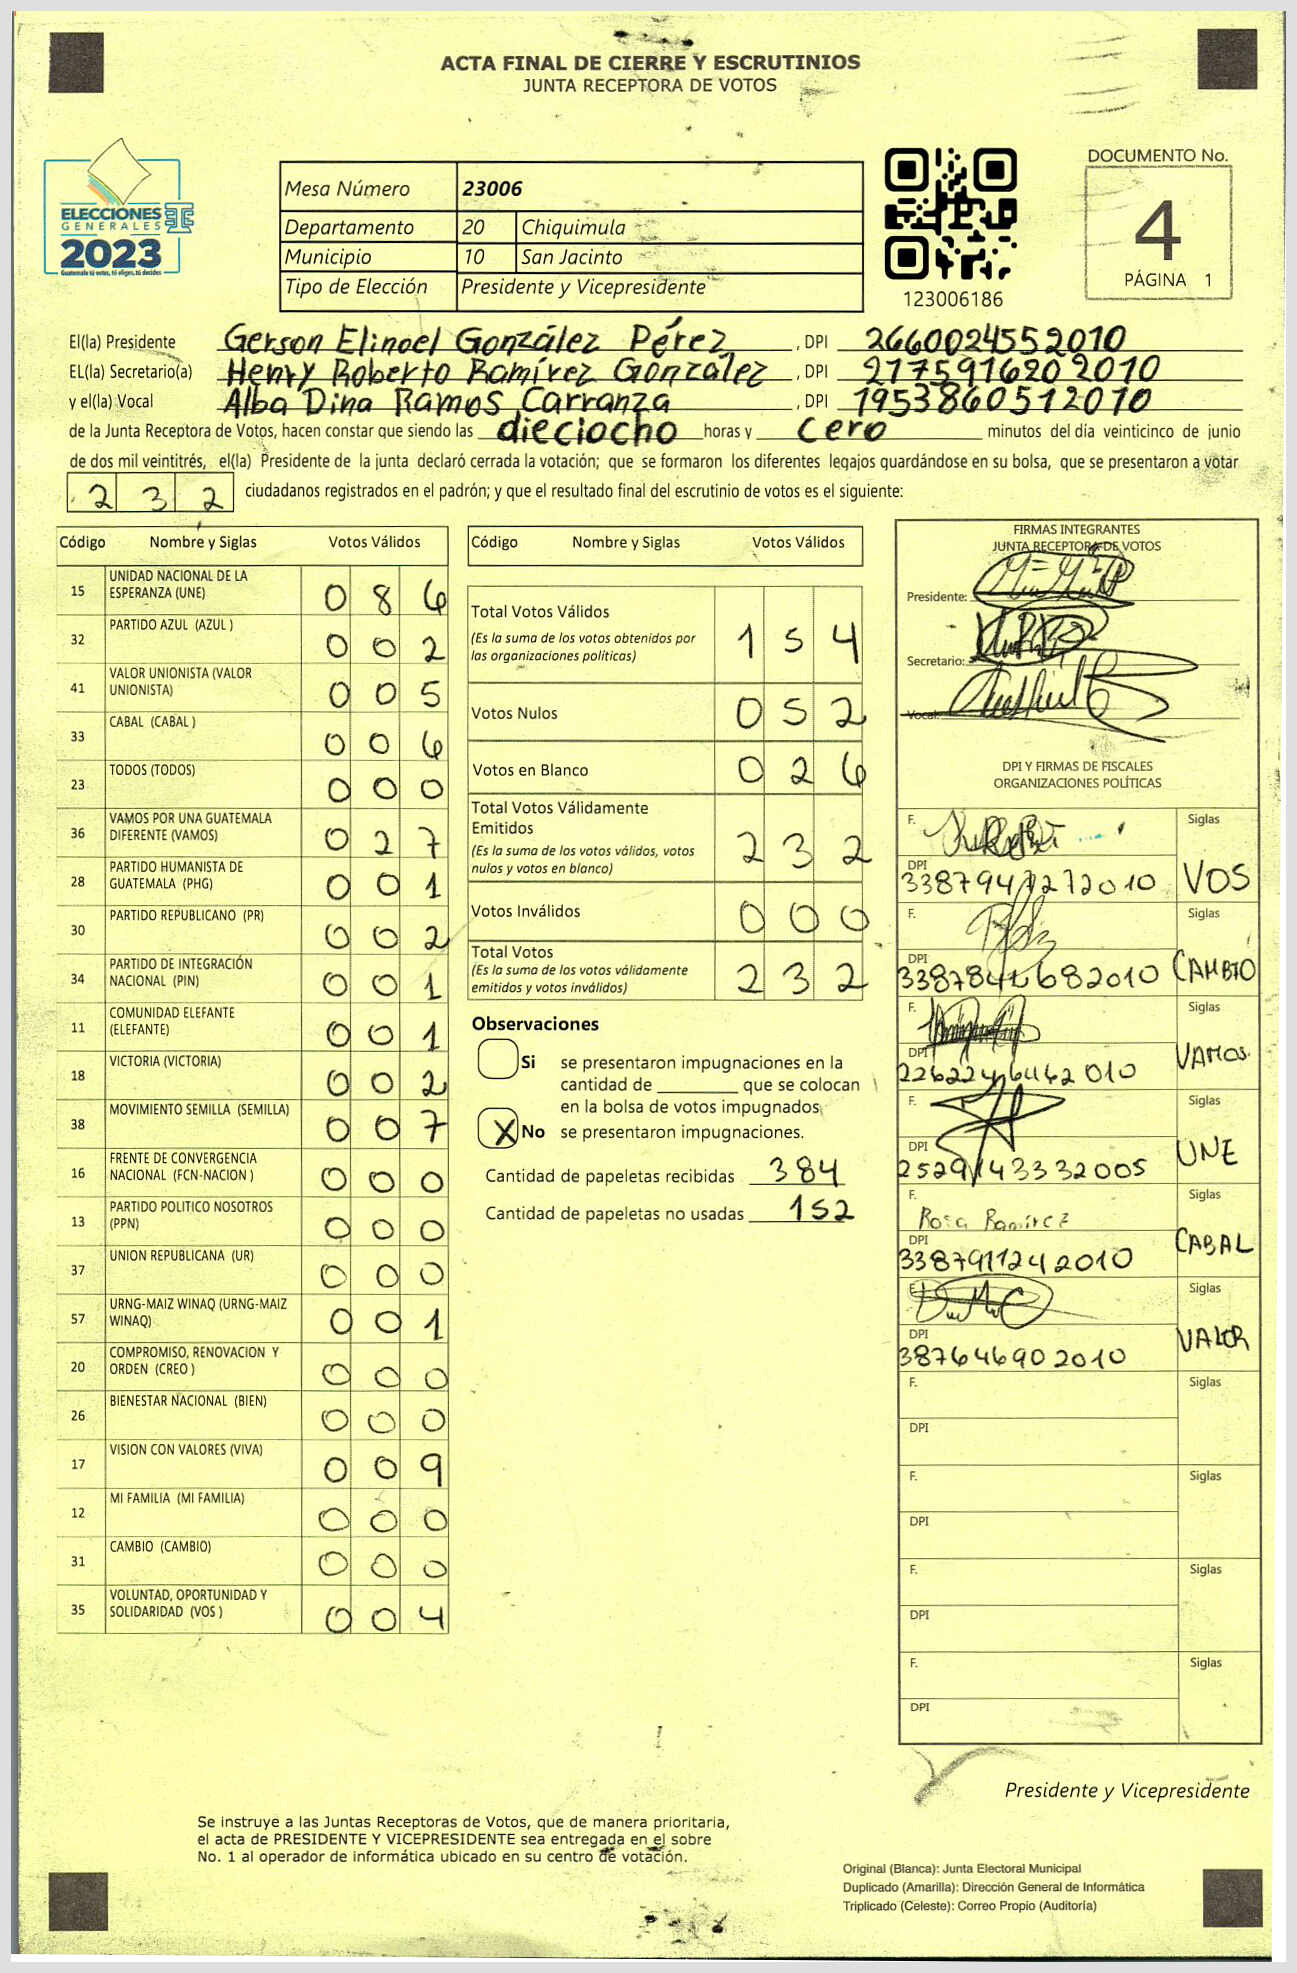 ACTA FINAL DE CIERRE Y ESCRUTINIOS
JUNTA RECEPTORA DE VOTOS
ELECCIONES
GENERALES
2023
Guatemala tú votas, tú eliges, tú decides
Mesa Número 23006
Departamento 20 Chiquimula
Municipio 10 San Jacinto
Tipo de Elección Presidente y Vicepresidente
123006186
DOCUMENTO No.
4
PÁGINA 1
El(la) Presidente Gerson Elinoel González Pérez, DPI 2660024552010
EL(la) Secretario(a) Henry Roberto Ramírez González, DPI 2175916202010
y el(la) Vocal Alba Dina Ramos Carranza, DPI 1953860512010
de la Junta Receptora de Votos, hacen constar que siendo las dieciocho horas y cero minutos del día veinticinco de junio
de dos mil veintitrés, el(la) Presidente de la junta declaró cerrada la votación; que se formaron los diferentes legajos guardándose en su bolsa, que se presentaron a votar
2 3 2 ciudadanos registrados en el padrón; y que el resultado final del escrutinio de votos es el siguiente:
Código Nombre y Siglas Votos Válidos
15 UNIDAD NACIONAL DE LA
ESPERANZA (UNE) 0 8 6
32 PARTIDO AZUL (AZUL ) 0 0 2
41 VALOR UNIONISTA (VALOR
UNIONISTA) 0 0 5
33 CABAL (CABAL ) 0 0 6
23 TODOS (TODOS) 0 0 0
36 VAMOS POR UNA GUATEMALA
DIFERENTE (VAMOS) 0 2 7
28 PARTIDO HUMANISTA DE
GUATEMALA (PHG) 0 0 1
30 PARTIDO REPUBLICANO (PR) 0 0 2
34 PARTIDO DE INTEGRACIÓN
NACIONAL (PIN) 0 0 1
11 COMUNIDAD ELEFANTE
(ELEFANTE) 0 0 1
18 VICTORIA (VICTORIA) 0 0 2
38 MOVIMIENTO SEMILLA (SEMILLA) 0 0 7
16 FRENTE DE CONVERGENCIA
NACIONAL (FCN-NACION ) 0 0 0
13 PARTIDO POLITICO NOSOTROS
(PPN) 0 0 0
37 UNION REPUBLICANA (UR) 0 0 0
57 URNG-MAIZ WINAQ (URNG-MAIZ
WINAQ) 0 0 1
20 COMPROMISO, RENOVACION Y
ORDEN (CREO ) 0 0 0
26 BIENESTAR NACIONAL (BIEN) 0 0 0
17 VISION CON VALORES (VIVA) 0 0 9
12 MI FAMILIA (MI FAMILIA) 0 0 0
31 CAMBIO (CAMBIO) 0 0 0
35 VOLUNTAD, OPORTUNIDAD Y
SOLIDARIDAD (VOS ) 0 0 4
Código Nombre y Siglas Votos Válidos
Total Votos Válidos
(Es la suma de los votos obtenidos por
las organizaciones políticas) 1 5 4
Votos Nulos 0 5 2
Votos en Blanco 0 2 6
Total Votos Válidamente
Emitidos
(Es la suma de los votos válidos, votos
nulos y votos en blanco) 2 3 2
Votos Inválidos 0 0 0
Total Votos
(Es la suma de los votos válidamente
emitidos y votos inválidos) 2 3 2
Observaciones
Si se presentaron impugnaciones en la
cantidad de que se colocan
en la bolsa de votos impugnados.
X No se presentaron impugnaciones.
Cantidad de papeletas recibidas 384
Cantidad de papeletas no usadas 152
FIRMAS INTEGRANTES
JUNTA RECEPTORA DE VOTOS
Presidente:
Secretario:
Vocal:
DPI Y FIRMAS DE FISCALES
ORGANIZACIONES POLÍTICAS
F. Siglas
DPI
VOS
F. Siglas
DPI
CAMBIO
F. Siglas
DPI
VAMOS
F. Siglas
DPI
UNE
F. Siglas
Rosa Ramírez
DPI
3387911242010 CABAL
F. Siglas
DPI
387646902010 VALOR
F. Siglas
DPI
F. Siglas
DPI
F. Siglas
DPI
F. Siglas
DPI
Presidente y Vicepresidente
Se instruye a las Juntas Receptoras de Votos, que de manera prioritaria,
el acta de PRESIDENTE Y VICEPRESIDENTE sea entregada en el sobre
No. 1 al operador de informática ubicado en su centro de votación.
Original (Blanca): Junta Electoral Municipal
Duplicado (Amarilla): Dirección General de Informática
Triplicado (Celeste): Correo Propio (Auditoría)